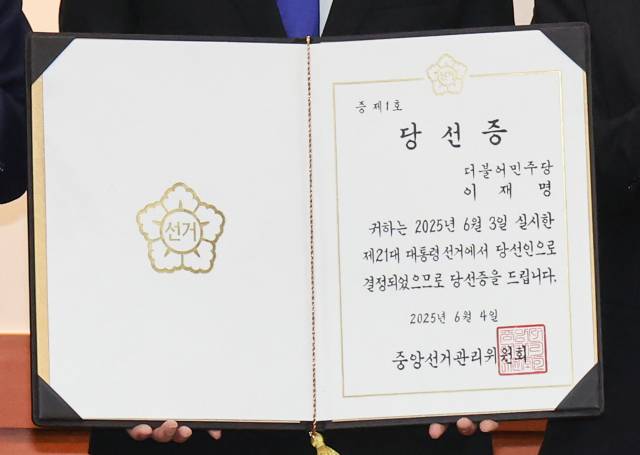 선거
선거
증 제1호
당 선 증
더불어민주당
이 재 명
귀하는 2025년 6월 3일 실시한
제21대 대통령선거에서 당선인으로
결정되었으므로 당선증을 드립니다.
2025년 6월 4일
중앙선거관리위원회